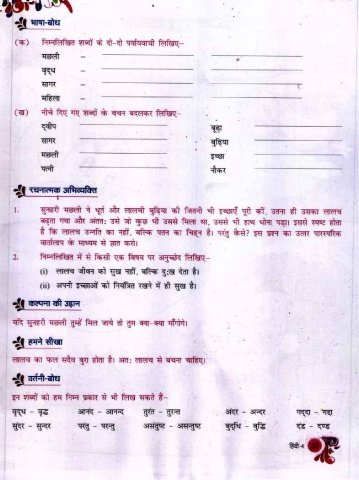 भाषा-बोध
(क) निम्नलिखित शब्दों के दो-दो पर्यायवाची लिखिए–
मछली –
वृद्ध –
सागर –
महिला –
(ख) नीचे दिए गए शब्दों के वचन बदलकर लिखिए–
द्वीप चूहा
सागर बुढ़िया
मछली इच्छा
पत्नी नौकर
रचनात्मक अभिव्यक्ति
1. सुनहरी मछली ने धूर्त और लालची बुढ़िया की जितनी भी इच्छाएँ पूरी कीं, उतना ही उसका लालच
बढ़ता गया और अंततः उसे जो कुछ भी उससे मिला था, उससे भी हाथ धोना पड़ा। इससे स्पष्ट होता
है कि लालच उन्नति का नहीं, बल्कि पतन का चिह्न है। परंतु कैसे? इस प्रश्न का उत्तर पारस्परिक
वार्तालाप के माध्यम से ज्ञात करो।
2. निम्नलिखित में से किसी एक विषय पर अनुच्छेद लिखिए–
(i) लालच जीवन को सुख नहीं, बल्कि दुःख देता है।
(ii) अपनी इच्छाओं को नियंत्रित रखने में ही सुख है।
कल्पना की उड़ान
यदि सुनहरी मछली तुम्हें मिल जाये तो तुम क्या-क्या माँगोगे।
हमने सीखा
लालच का फल सदैव बुरा होता है। अतः लालच से बचना चाहिए।
वर्तनी-बोध
इन शब्दों को हम निम्न प्रकार से भी लिख सकते हैं–
वृद्ध – वृद्ध आनंद – आनन्द तुरंत – तुरन्त अंदर – अन्दर गद्दा – गद्दा
सुंदर – सुन्दर परंतु – परन्तु असंतुष्ट – असन्तुष्ट बुद्धि – बुद्धि दंड – दण्ड
हिंदी-4